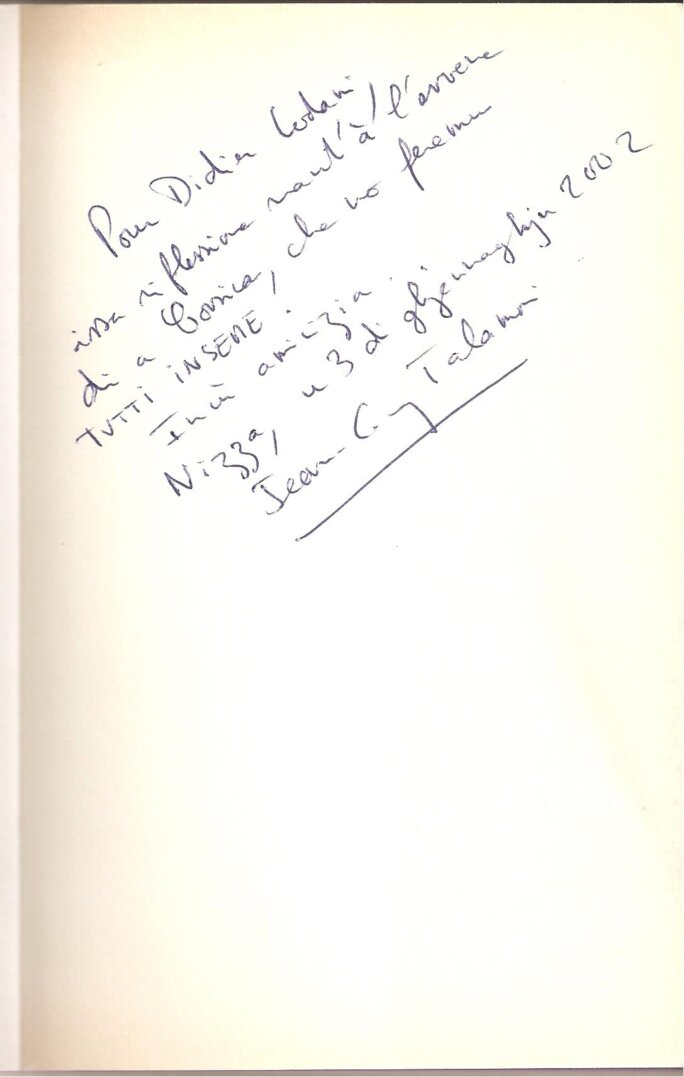 Pour Didier Codani,
issa riflessione nant'à l'avvene
di a Corsica, che no feremu
TUTTI INSEME.
Incù amicizia.
Nizza, u 3 di ghjennaghju 2002
Jean-Guy Talamoni